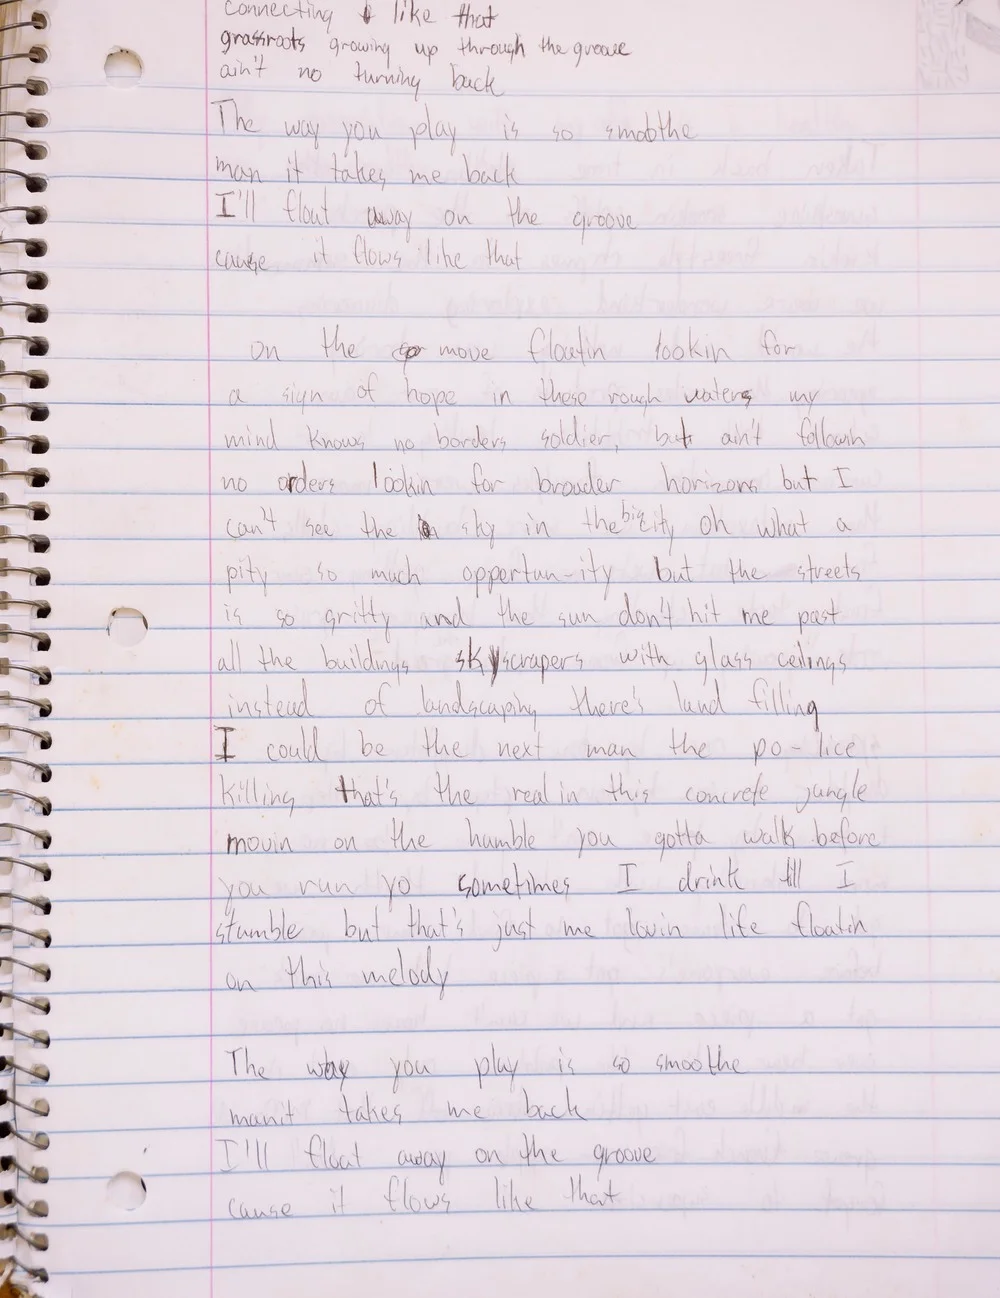 connecting like that
grassroots growing up through the groove
ain't no turning back
The way you play is so smoothe
man it takes me back
I'll float away on the groove
cause it flows like that
on the move floatin lookin for
a sign of hope in these rough waters my
mind knows no borders soldier, but ain't followin
no orders lookin for broader horizons but I
can't see the sky in the big city oh what a
pity so much opportun-ity but the streets
is so gritty and the sun don't hit me past
all the buildings skyscrapers with glass ceilings
instead of landscaping there's land filling
I could be the next man the po-lice
killing that's the real in this concrete jungle
movin on the humble you gotta walk before
you run yo sometimes I drink till I
stumble but that's just me lovin life floatin
on this melody
The way you play is so smoothe
man it takes me back
I'll float away on the groove
cause it flows like that